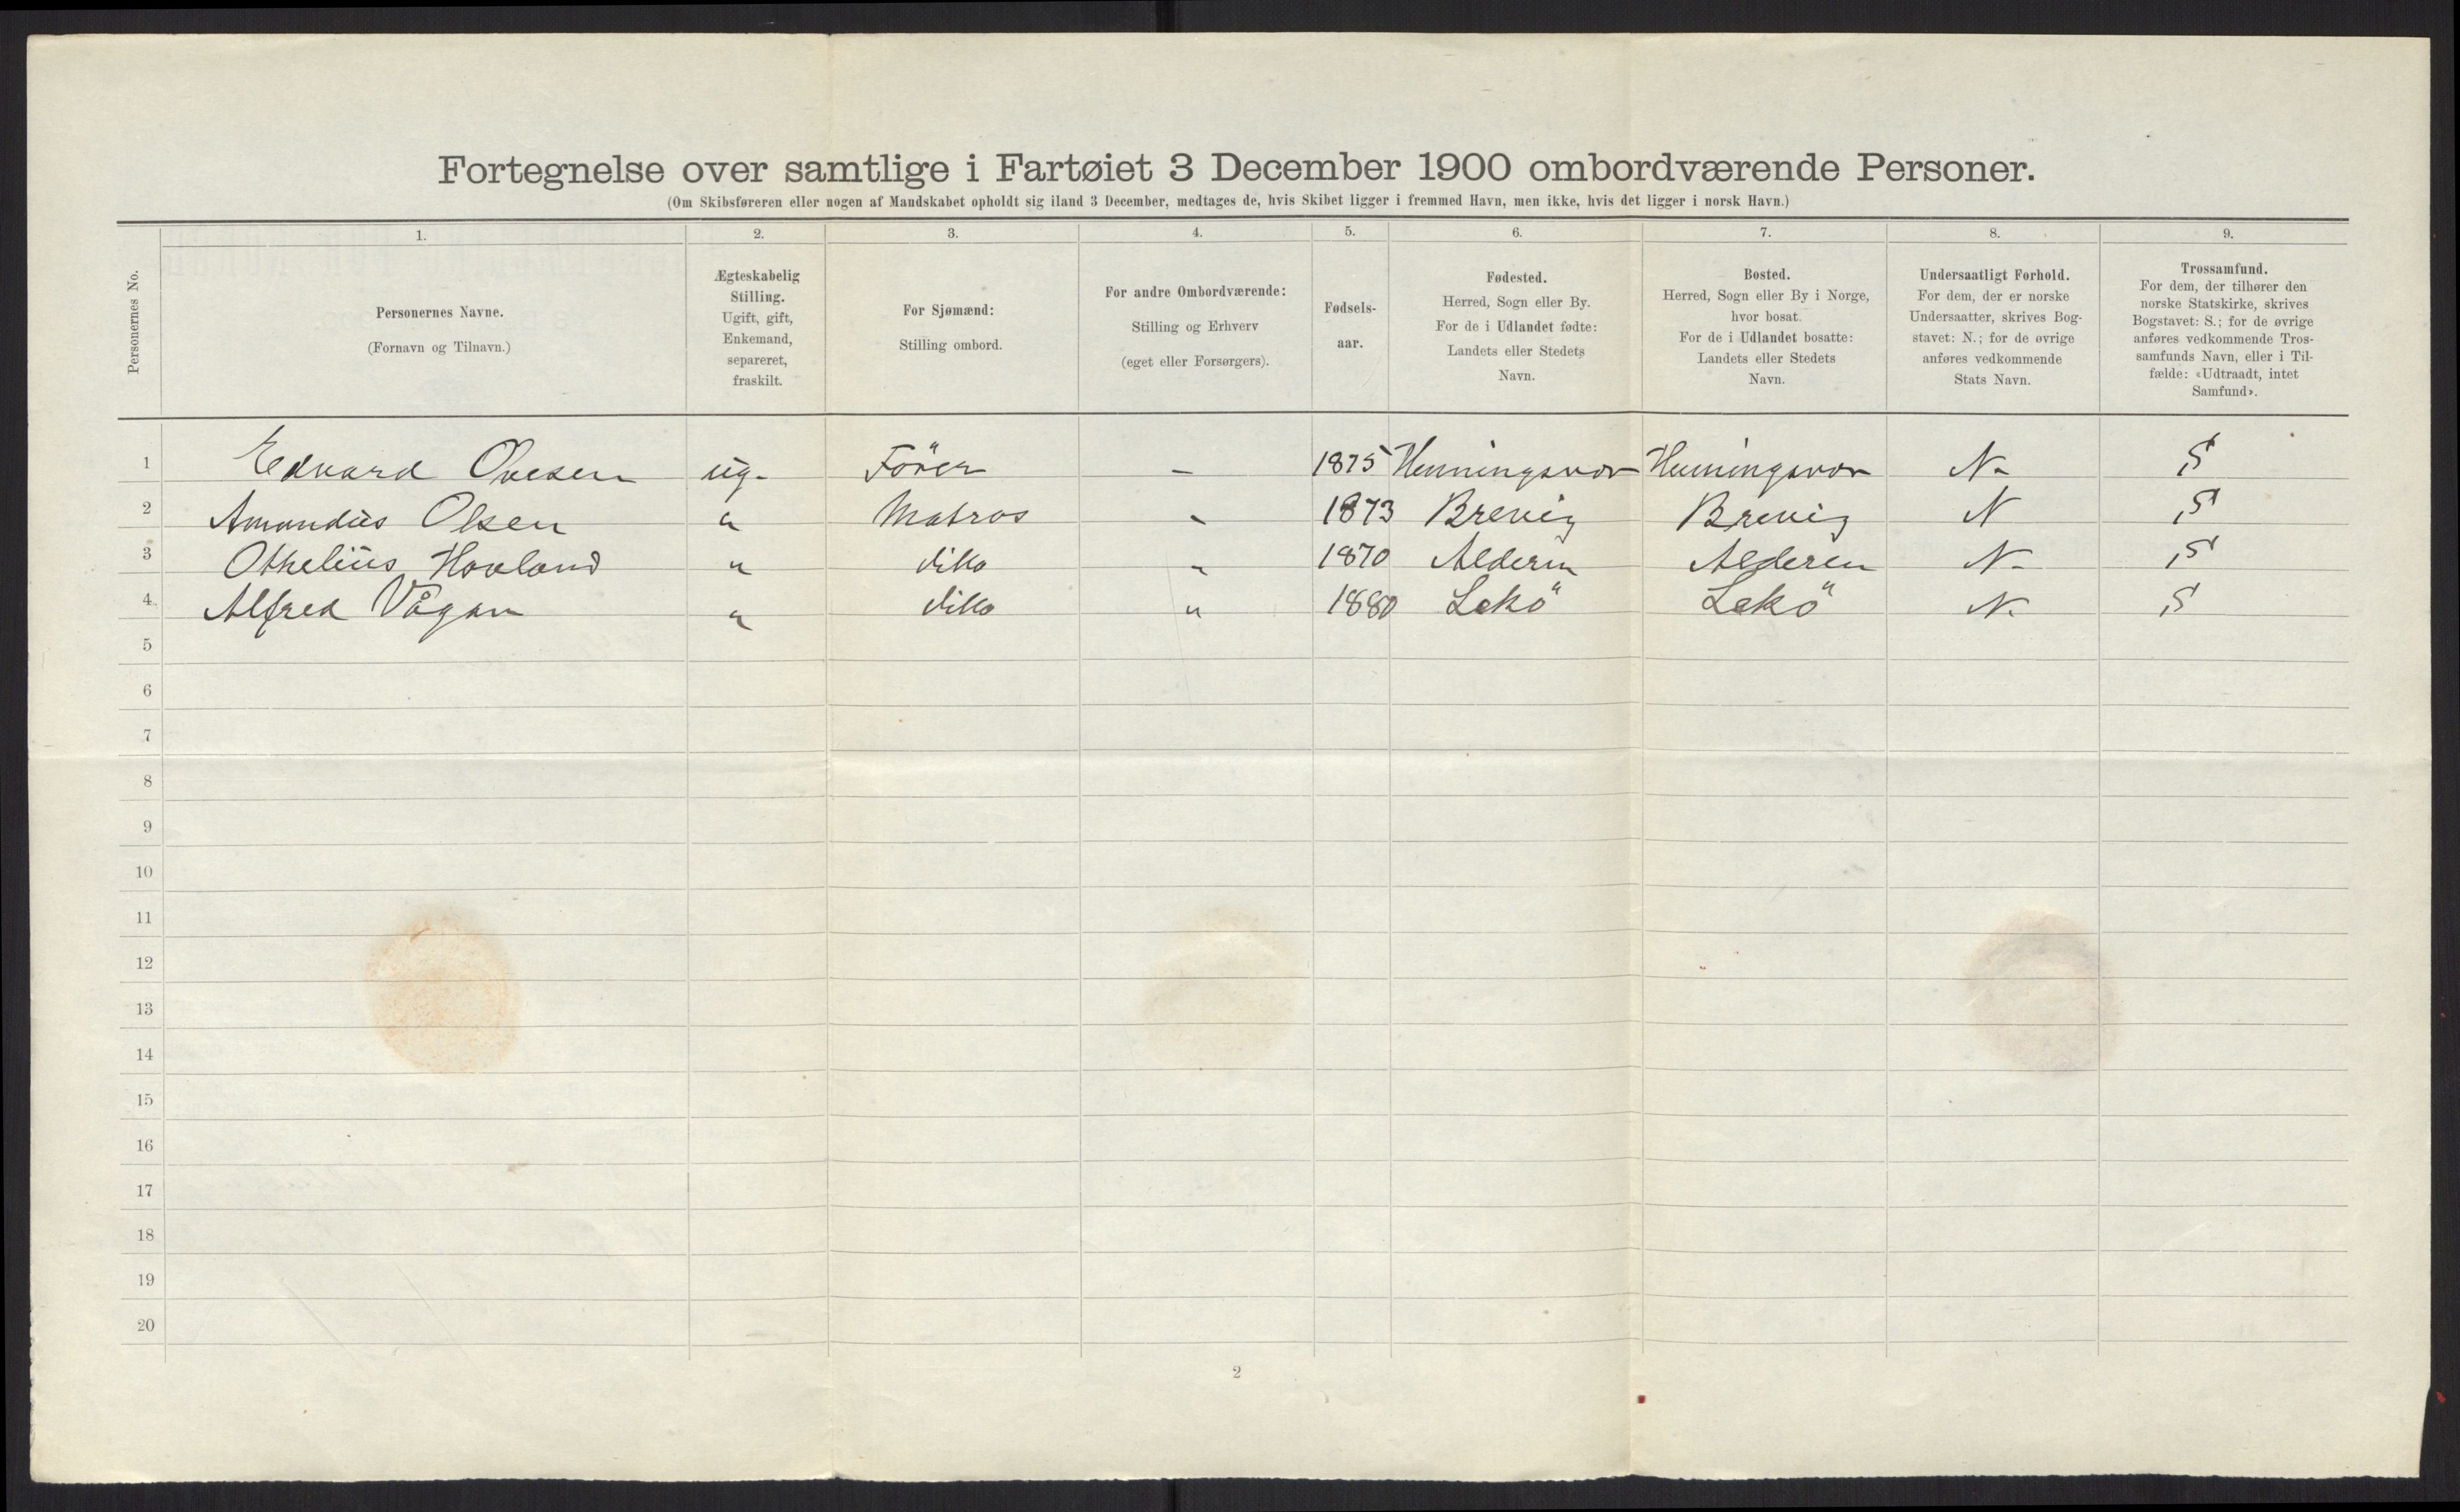 Fortegnelse over samtlige i Fartøiet 3 December 1900 ombordværende Personer.
(Om Skibsføreren eller nogen af Mandskabet opholdt sig iland 3 December, medtages de, hvis Skibet ligger i fremmed Havn, men ikke, hvis det ligger i norsk Havn.)
Personernes No.
1.
Personernes Navne.
(Fornavn og Tilnavn.)
2.
Ægteskabelig
Stilling.
Ugift, gift,
Enkemand,
separeret,
fraskilt.
3.
For Sjømænd:
Stilling ombord.
4.
For andre Ombordværende:
Stilling og Erhverv
(eget eller Forsørgers).
5.
Fødsels-
aar.
6.
Fødested.
Herred, Sogn eller By.
For de i Udlandet fødte:
Landets eller Stedets
Navn.
7.
Bosted.
Herred, Sogn eller By i Norge,
hvor bosat.
For de i Udlandet bosatte:
Landets eller Stedets
Navn.
8.
Undersaatligt Forhold.
For dem, der er norske
Undersaatter, skrives Bog-
stavet: N.; for de øvrige
anføres vedkommende
Stats Navn.
9.
Trossamfund.
For dem, der tilhører den
norske Statskirke, skrives
Bogstavet: S.; for de øvrige
anføres vedkommende Tros-
samfunds Navn, eller i Til-
fælde: «Udtraadt, intet
Samfund».
1 Edvard Ovesen ug. Förer – 1875 Henningsvær Henningsvær N. S
2 Amandus Olsen " Matros " 1873 Brevig Brevig N S
3 Othelius Hovland " ditto " 1870 Alderen Alderen N. S
4 Alfred Vågan " ditto " 1880 Lekö Lekö N. S
5
6
7
8
9
10
11
12
13
14
15
16
17
18
19
20
2